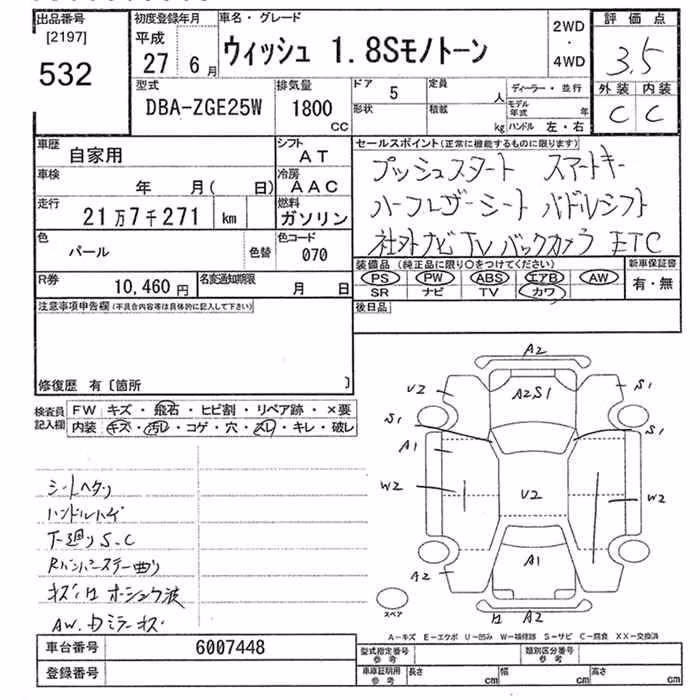 出品番号
[2197]
532
初度登録年月
平成
27 6月
車名・グレード
ウィッシュ 1.8Sモノトーン
2WD
・
4WD
評価点
3.5
外装 内装
C C
型式
DBA-ZGE25W
排気量
1800
CC
ドア 5
形状
定員 人
積載 kg
ディーラー・並行
モデル年式 年
ハンドル 左・右
車歴 自家用
シフト AT
車検 年 月( 日)
冷房 AAC
走行 21万7千271 km
燃料 ガソリン
色 パール 色替
色コード 070
R券 10,460円
名変通知期限 月 日
セールスポイント(正常に機能するものに限ります)
プッシュスタート スマートキー
ハーフレザーシート パドルシフト
社外ナビTVバックカメラ ETC
装備品(純正品に限り○をつけてください)
PS PW ABS エアB AW
SR ナビ TV カワ
新車保証書
有・無
後日品
注意事項申告欄(不具合内容等は具体的に記入して下さい)
修復歴 有〔箇所 〕
検査員記入欄
FW キズ・飛石・ヒビ割・リペア跡・×要
内装 キズ・汚レ・コゲ・穴・スレ・キレ・破レ
シートヘタリ
ハンドルハゲ
下廻りS.C
Rバンパーステー曲り
AW.Dミラーキズ
A2
U2
A2S1
S1
S1
S1
A1
W2
U2
W2
A1
A2
A2
スペア
A-キズ E-エクボ U-凹み W-補修跡 S-サビ C-腐食 XX-交換済
車台番号 6007448
登録番号
型式指定番号 参考
類別区分番号 参考
車庫証明用 参考
長さ cm
幅 cm
高さ cm